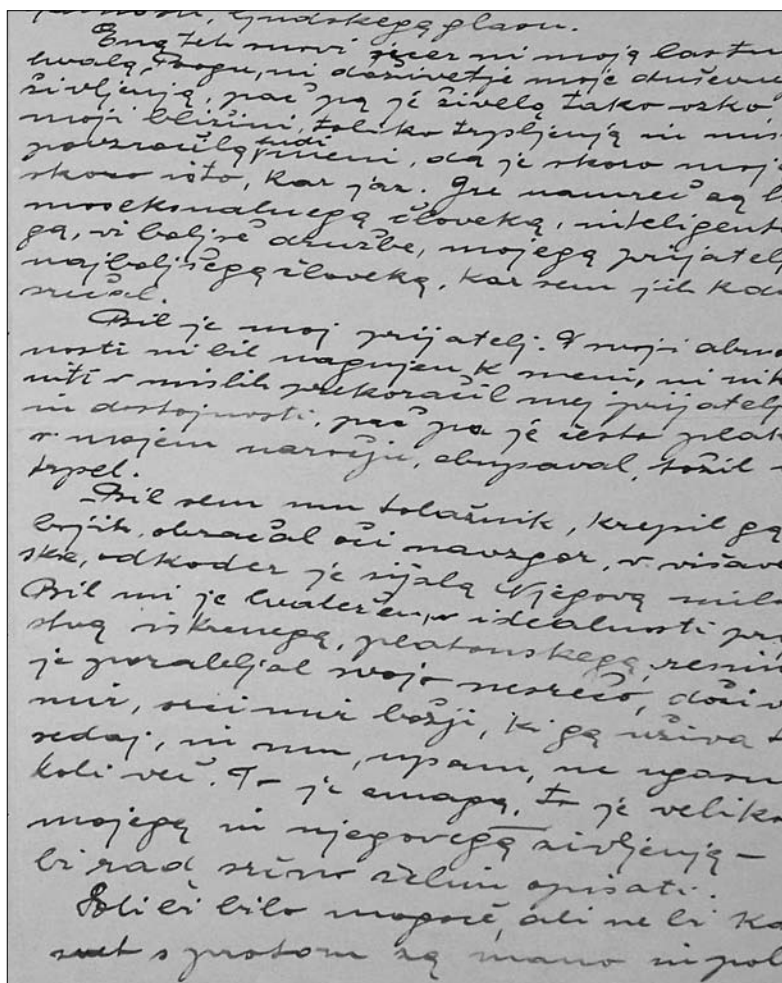 ljudskega glasu.
Ena teh snovi sicer ni moja lastn
hvala Bogu, ni doživetje moje duševn
življenja, pač pa je živela tako ozko
moji bližini, toliko trpljenja in
povzročila tudi meni, da je skoro moja
skoro isto, kar jaz. Gre namreč za h
moseksualnega človeka, inteligent
ga, iz boljše družbe, mojega prijatelj
najboljšega človeka, kar sem jih ka
srečal.
Bil je moj prijatelj. V svoji abno
nosti ni bil nagnjen k meni, ni nik
niti v mislih prekoračil mej prijatelj
in dostojnosti, pač pa je često plak
v mojem naročju, obupaval, tožil
trpel.
Bil sem mu tolažnik, krepil ga
božjih, obračal oči navzgor, v višave
ske, odkoder je sijala Njegova mil
Bil mi je hvaležen, v idealnosti pri
stva iskrenega, platonskega,
je pozabljal svojo nesrečo, doživ
mir, oni mir božji, ki ga uživa
sedaj, in mu, upam, ne ugasn
koli več. To je zmaga, to je velik
mojega in njegovega življenja –
bi rad srčno želim opisati.
Ali bi bilo mogoče, ali ne bi ka
svet s prstom za mano in pol